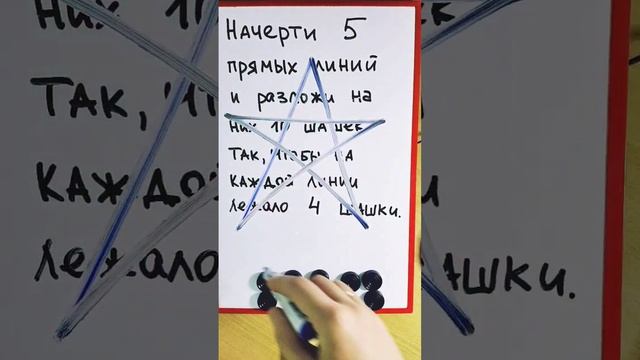 Начерти 5
прямых линий
и разложи на
них 10 шашек
так, чтобы на
каждой линии
лежало 4 шашки.